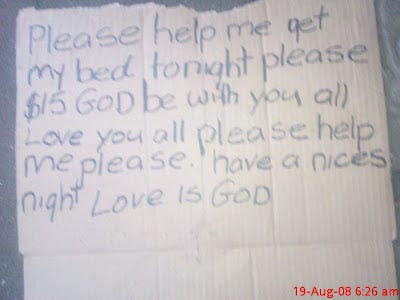 Please help me get
my bed tonight please
$15 GOD be with you all
Love you all please help
me please. have a nices
night Love Is GOD
19-Aug-08 6:26 am